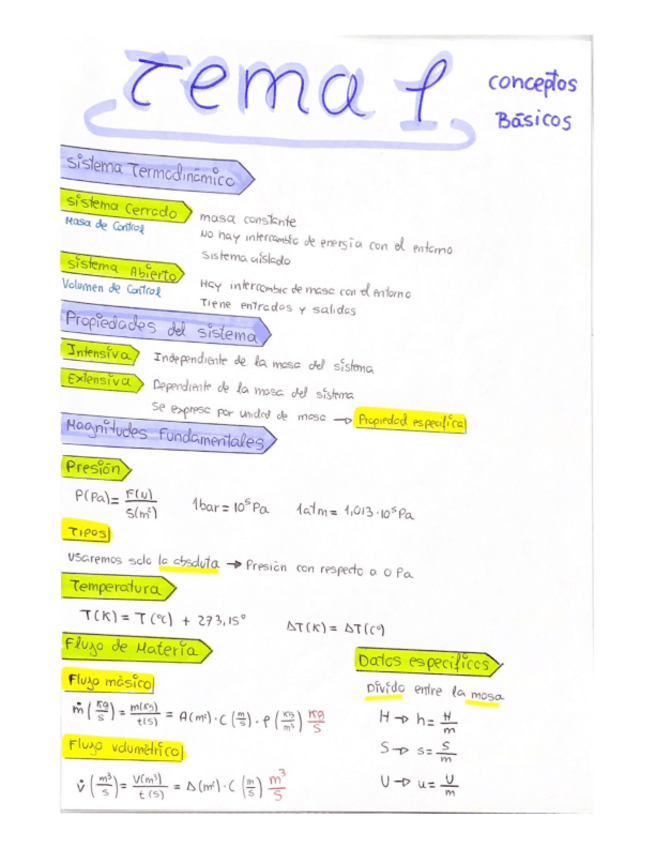 Tema 1 conceptos Básicos
Sistema Termodinámico
Sistema Cerrado
Masa de Control
masa constante
No hay intercambio de energía con el entorno
Sistema aislado
Sistema Abierto
Volumen de Control
Hay intercambio de masa con el entorno
Tiene entradas y salidas
Propiedades del sistema
Intensiva Independiente de la masa del sistema
Extensiva Dependiente de la masa del sistema
Se expresa por unidad de masa → Propiedad específica
Magnitudes Fundamentales
Presión
P(Pa) = F(N)/S(m²) 1bar = 10⁵ Pa 1atm = 1,013·10⁵ Pa
Tipos
Usaremos solo la absoluta → Presión con respecto a 0 Pa
Temperatura
T(K) = T(ºC) + 273,15º ΔT(K) = ΔT(Cº)
Flujo de Materia
Flujo másico
ṁ (kg/s) = m(kg)/t(s) = A(m²)·C (m/s)·ρ (kg/m³) kg/s
Flujo volumétrico
v̇ (m³/s) = V(m³)/t(s) = A(m²)·C (m/s) m³/s
Datos específicos
Divido entre la masa
H → h = H/m
S → s = S/m
U → u = U/m